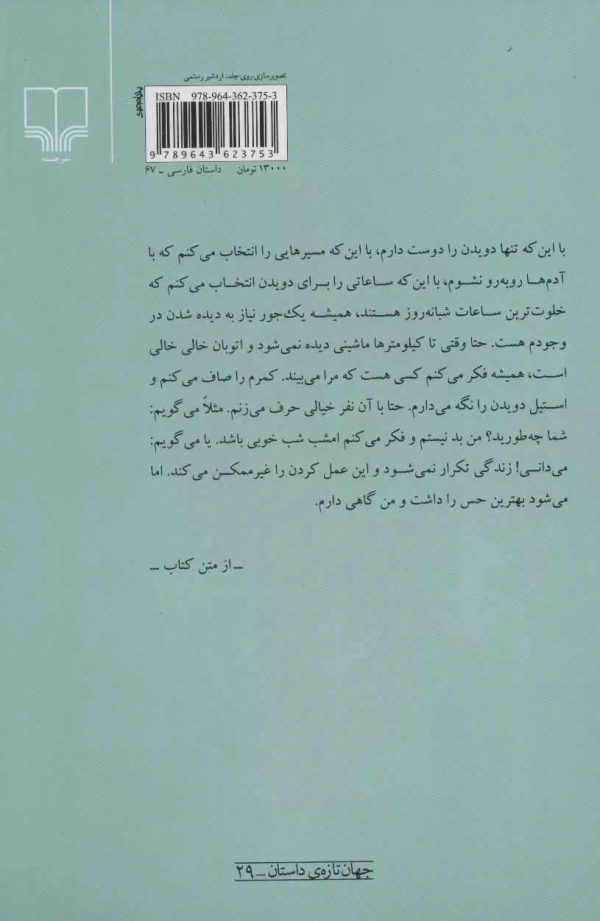 تصویرسازی روی جلد: اردشیر رستمی
ISBN 978-964-362-375-3
9 789643 623753
۱۳۰۰۰ تومان داستان فارسی ـ ۶۷
نشر چشمه
با این‌که تنها دویدن را دوست دارم، با این‌که مسیرهایی را انتخاب می‌کنم که با
آدم‌ها روبه‌رو نشوم، با این‌که ساعاتی را برای دویدن انتخاب می‌کنم که
خلوت‌ترین ساعات شبانه‌روز هستند، همیشه یک‌جور نیاز به دیده شدن در
وجودم هست. حتا وقتی تا کیلومترها ماشینی دیده نمی‌شود و اتوبان خالی خالی
است، همیشه فکر می‌کنم کسی هست که مرا می‌بیند. کمرم را صاف می‌کنم و
استیل دویدن را نگه می‌دارم. حتا با آن نفر خیالی حرف می‌زنم. مثلاً می‌گویم:
شما چه‌طورید؟ من بد نیستم و فکر می‌کنم امشب شب خوبی باشد. یا می‌گویم:
می‌دانی! زندگی تکرار نمی‌شود و این عمل کردن را غیرممکن می‌کند. اما
می‌شود بهترین حس را داشت و من گاهی دارم.
ـ از متن کتاب ـ
جهان تازه‌ی داستان ـ ۲۹